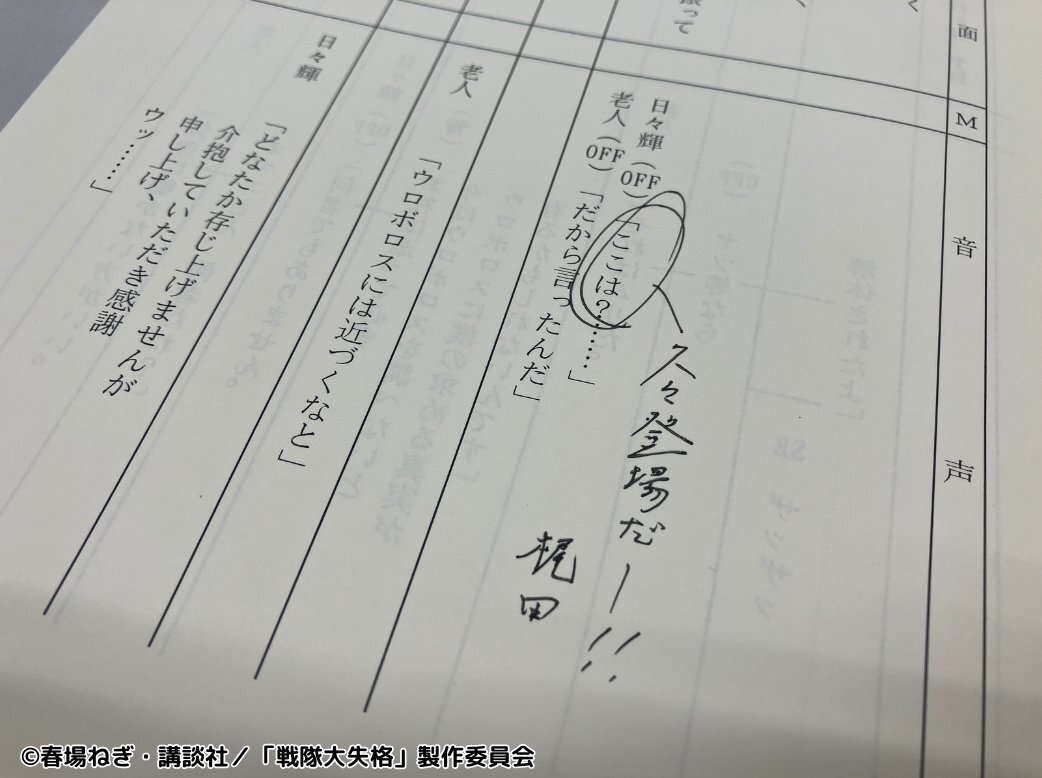 面
M
音声
振って
日々輝(OFF)「ここは?……」
久々登場だー!!
梶田
老人(OFF)「だから言ったんだ」
老人「ウロボロスには近づくなと」
日々輝「どなたか存じ上げませんが
介抱していただき感謝
申し上げ、
ウッ……」
©春場ねぎ・講談社/「戦隊大失格」製作委員会